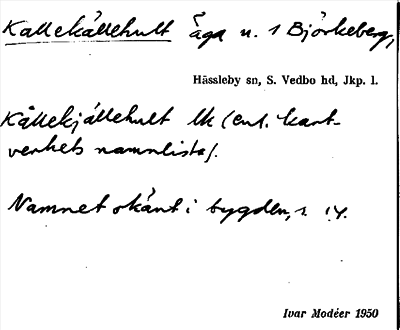 Kallekällehult äga u. 1 Björkeberg,
Hässleby sn, S. Vedbo hd, Jkp. l.
Kållekjällehult lk (enl. kart-
verkets namnlista).
Namnet okänt i bygden, s. 14.
Ivar Modéer 1950